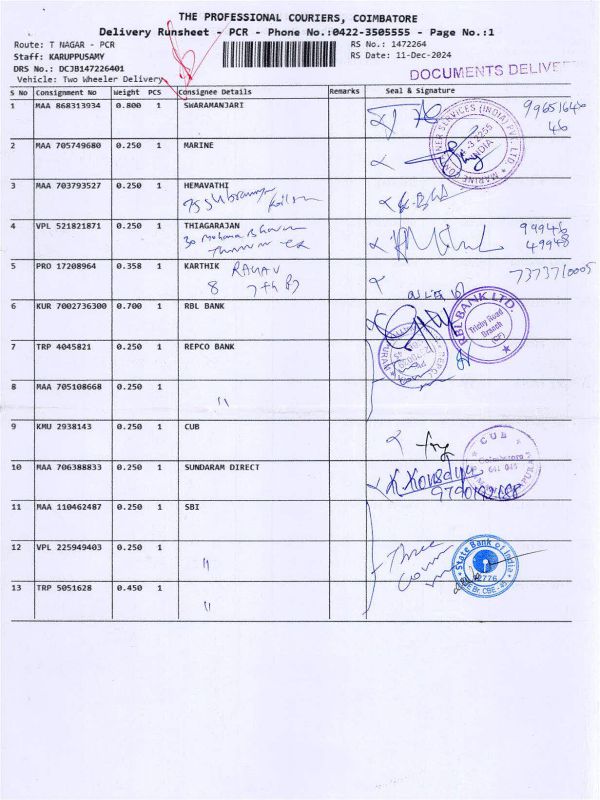 THE PROFESSIONAL COURIERS, COIMBATORE
Delivery Runsheet - PCR - Phone No.:0422-3505555 - Page No.:1
Route: T NAGAR - PCR
RS No.: 1472264
Staff: KARUPPUSAMY
RS Date: 11-Dec-2024
DRS No.: DCJB147226401
DOCUMENTS DELIVE
Vehicle: Two Wheeler Delivery
S No Consignment No Weight PCS Consignee Details Remarks Seal & Signature
1 MAA 868313934 0.800 1 SWARAMANJARI
99651646
46
2 MAA 705749680 0.250 1 MARINE
3 MAA 703793527 0.250 1 HEMAVATHI
4 VPL 521821871 0.250 1 THIAGARAJAN
99946
49948
5 PRO 17208964 0.358 1 KARTHIK RAGHAV
8
7373710005
6 KUR 7002736300 0.700 1 RBL BANK
RBL BANK LTD.
Trichy Road
Branch
(CF)
7 TRP 4045821 0.250 1 REPCO BANK
8 MAA 705108668 0.250 1 "
9 KMU 2938143 0.250 1 CUB
CUB
Coimbatore
641 045
10 MAA 706388833 0.250 1 SUNDARAM DIRECT
11 MAA 110462487 0.250 1 SBI
12 VPL 225949403 0.250 1 "
Three
State Bank of India
13 TRP 5051628 0.450 1 "